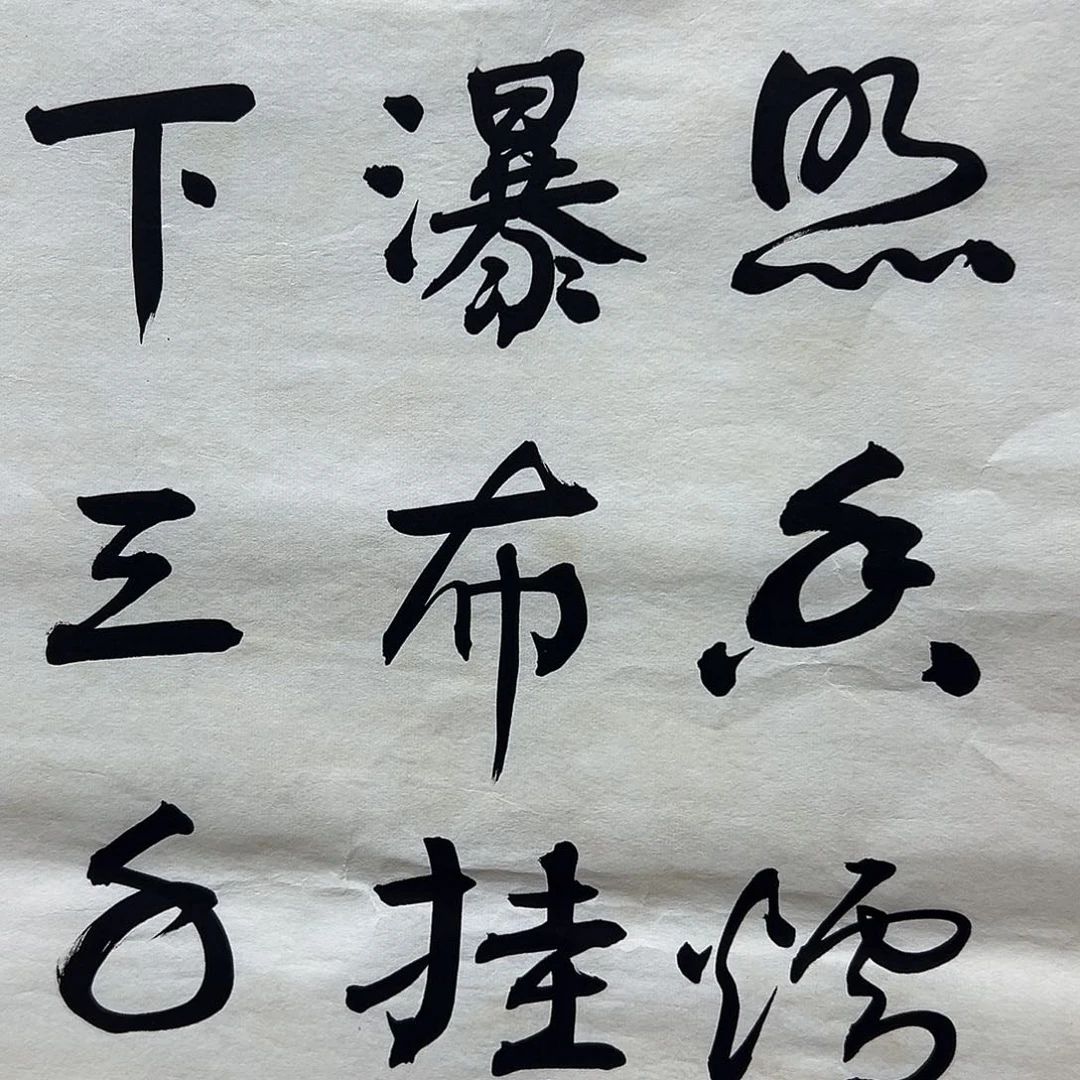 照香爐
瀑布挂
下三千